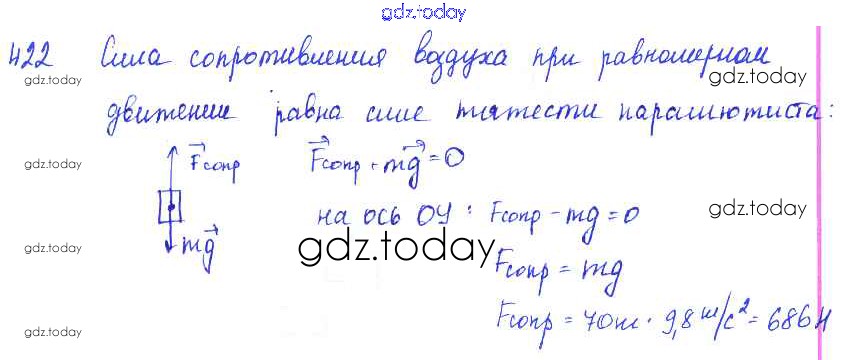 gdz.today
422 Сила сопротивления воздуха при равномерном
gdz.today gdz.today
движении равна силе тяжести парашютиста:
gdz.today F⃗сопр F⃗сопр + mg⃗ = 0 gdz.today
на ось ОУ: Fсопр - mg = 0 gdz.today
gdz.today mg⃗ gdz.today
Fсопр = mg
gdz.today Fсопр = 70кг · 9,8 м/с² = 686 Н gdz.today